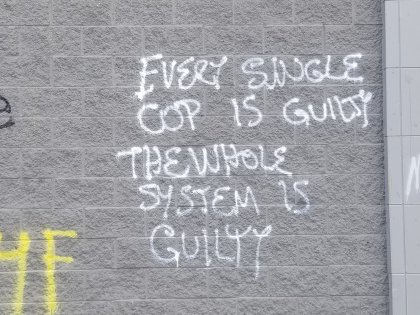 EVERY SINGLE
COP IS GUILTY
THE WHOLE
SYSTEM IS
GUILTY